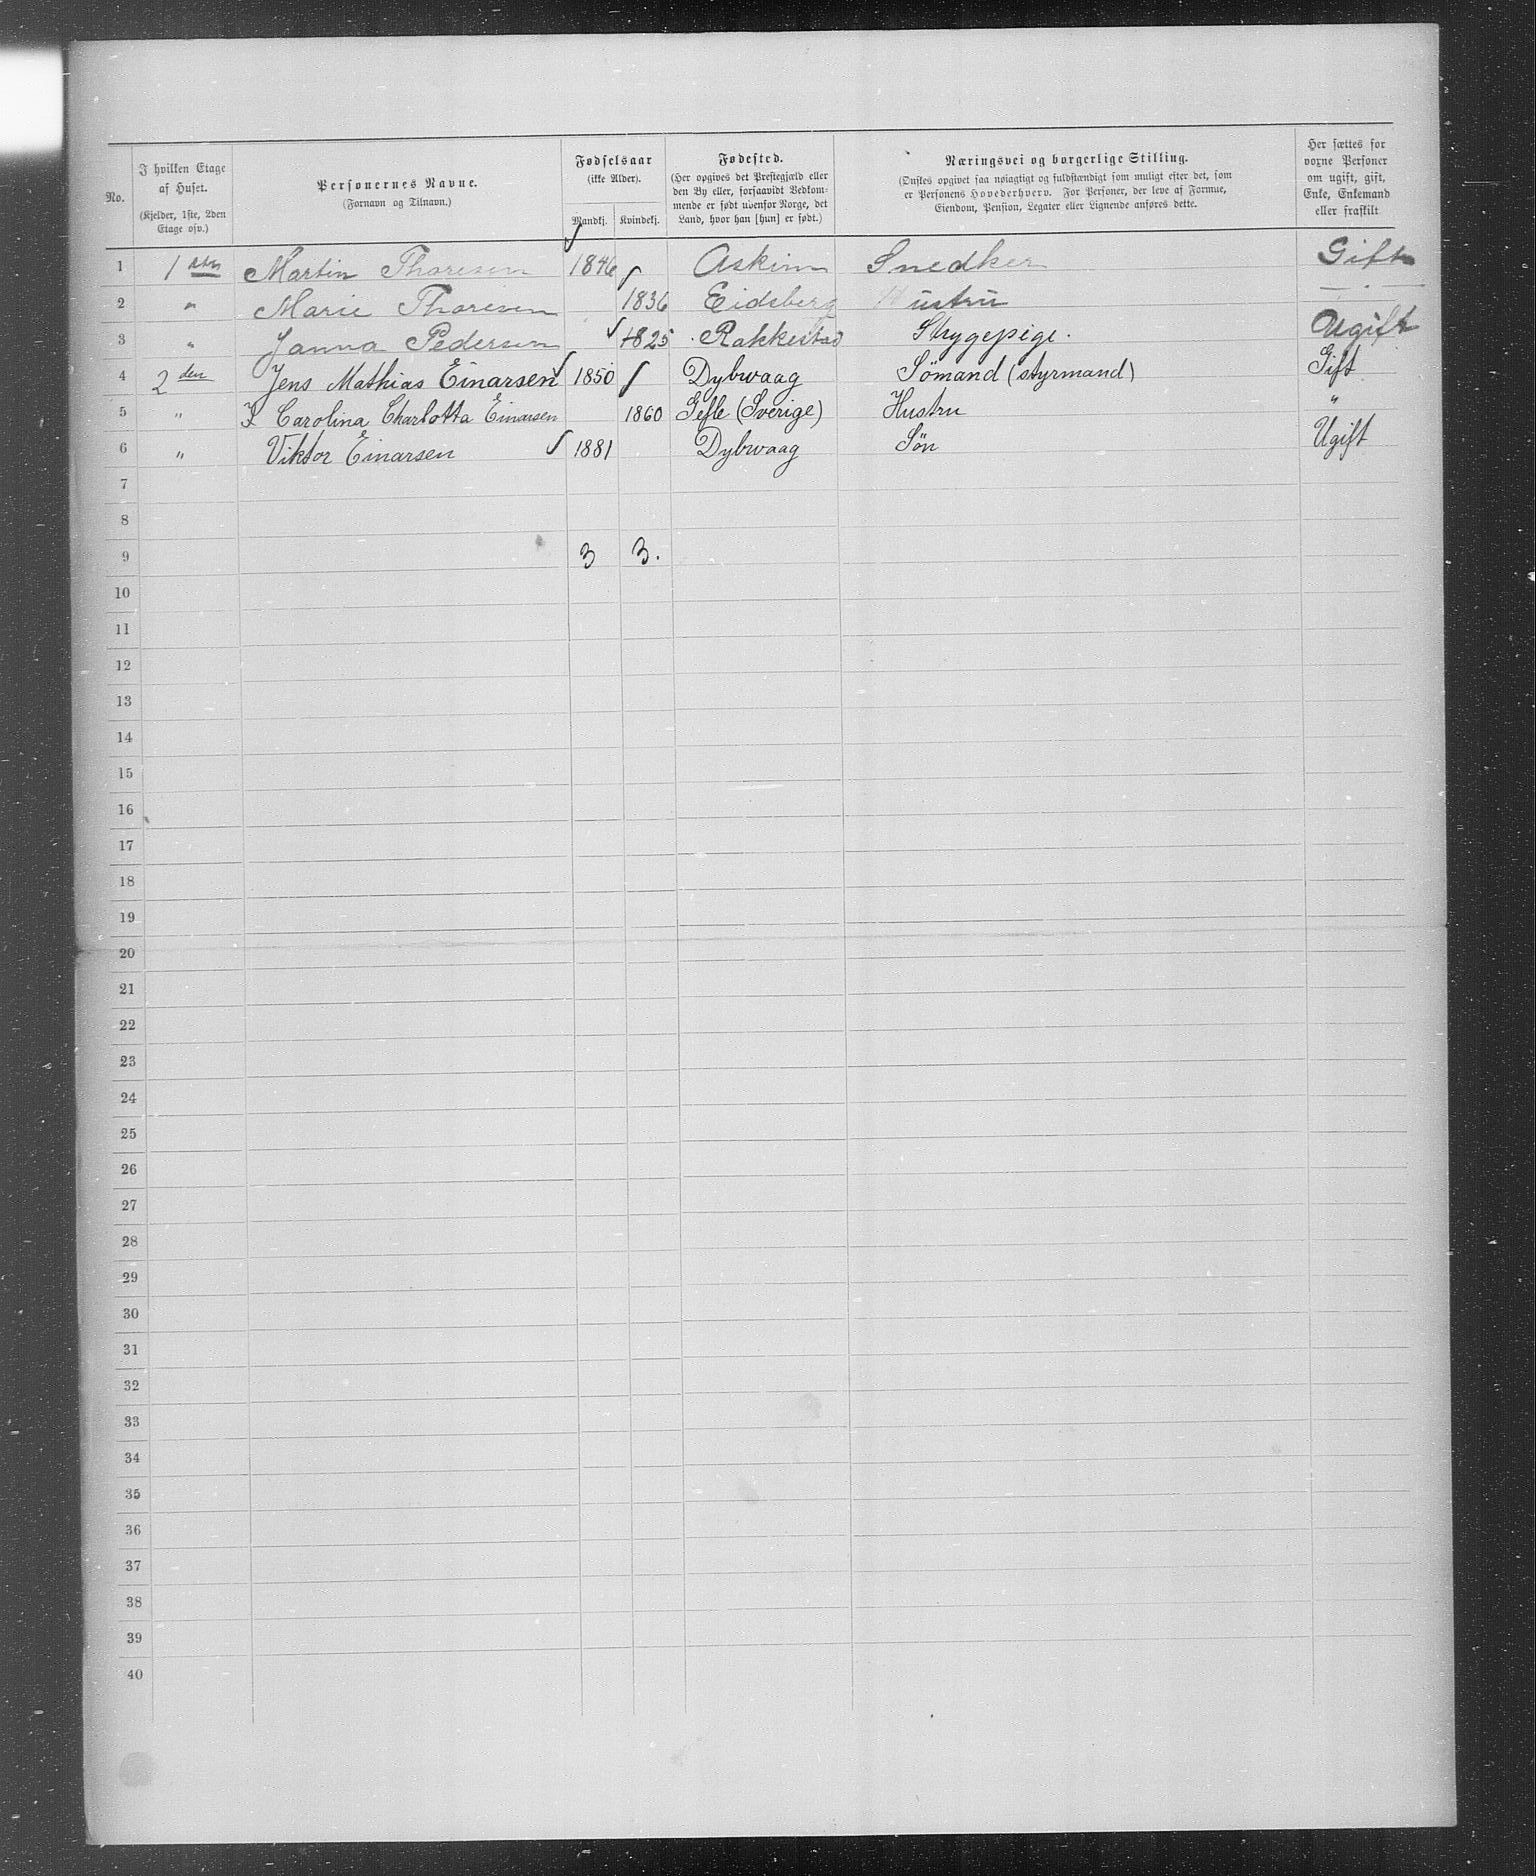 No.
I hvilken Etage af Huset. (Kjelder, 1ste, 2den Etage osv.)
Personernes Navne. (Fornavn og Tilnavn.)
Fødselsaar (ikke Alder). Mandkj. Kvindekj.
Fødested. (Her opgives det Prestegjæld eller den By eller, forsaavidt Vedkommende er født udenfor Norge, det Land, hvor han [hun] er født.)
Næringsvei og borgerlige Stilling. (Ønskes opgivet saa nøiagtigt og fuldstændigt som muligt efter det, som er Personens Hovederhverv. For Personer, der leve af Formue, Eiendom, Pension, Legater eller Lignende anføres dette.
Her sættes for voxne Personer om ugift, gift, Enke, Enkemand eller fraskilt
1 1 sten Martin Thoresen 1846 Askim Snedker Gift
2 " Marie Thoresen 1836 Eidsberg Hustru — " —
3 " Janna Pedersen 1825 Rakkestad Strygepige. Ugift
4 2 den Jens Mathias Einarsen 1850 Dybwaag Sömand (styrmand) Gift
5 " Carolina Charlotta Einarsen 1860 Gefle (Sverige) Hustru "
6 " Viktor Einarsen 1881 Dybwaag Sön Ugift
7
8
9 3 3.
10
11
12
13
14
15
16
17
18
19
20
21
22
23
24
25
26
27
28
29
30
31
32
33
34
35
36
37
38
39
40